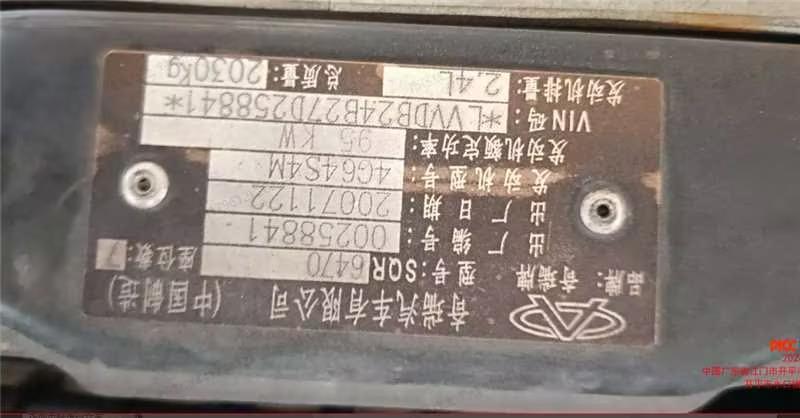 奇瑞汽车有限公司 (中国制造)
品牌: 奇瑞牌 型号: SQR 6470 座位数: 7
出厂编号 00258841
出厂日期: 20071122
发动机型号: 4G64S4M
发动机额定功率: 95 KW
VIN码: *LVVDB24B27D258841*
发动机排量: 2.4L 总质量: 2030kg
PICC
中国广东省江门市开平